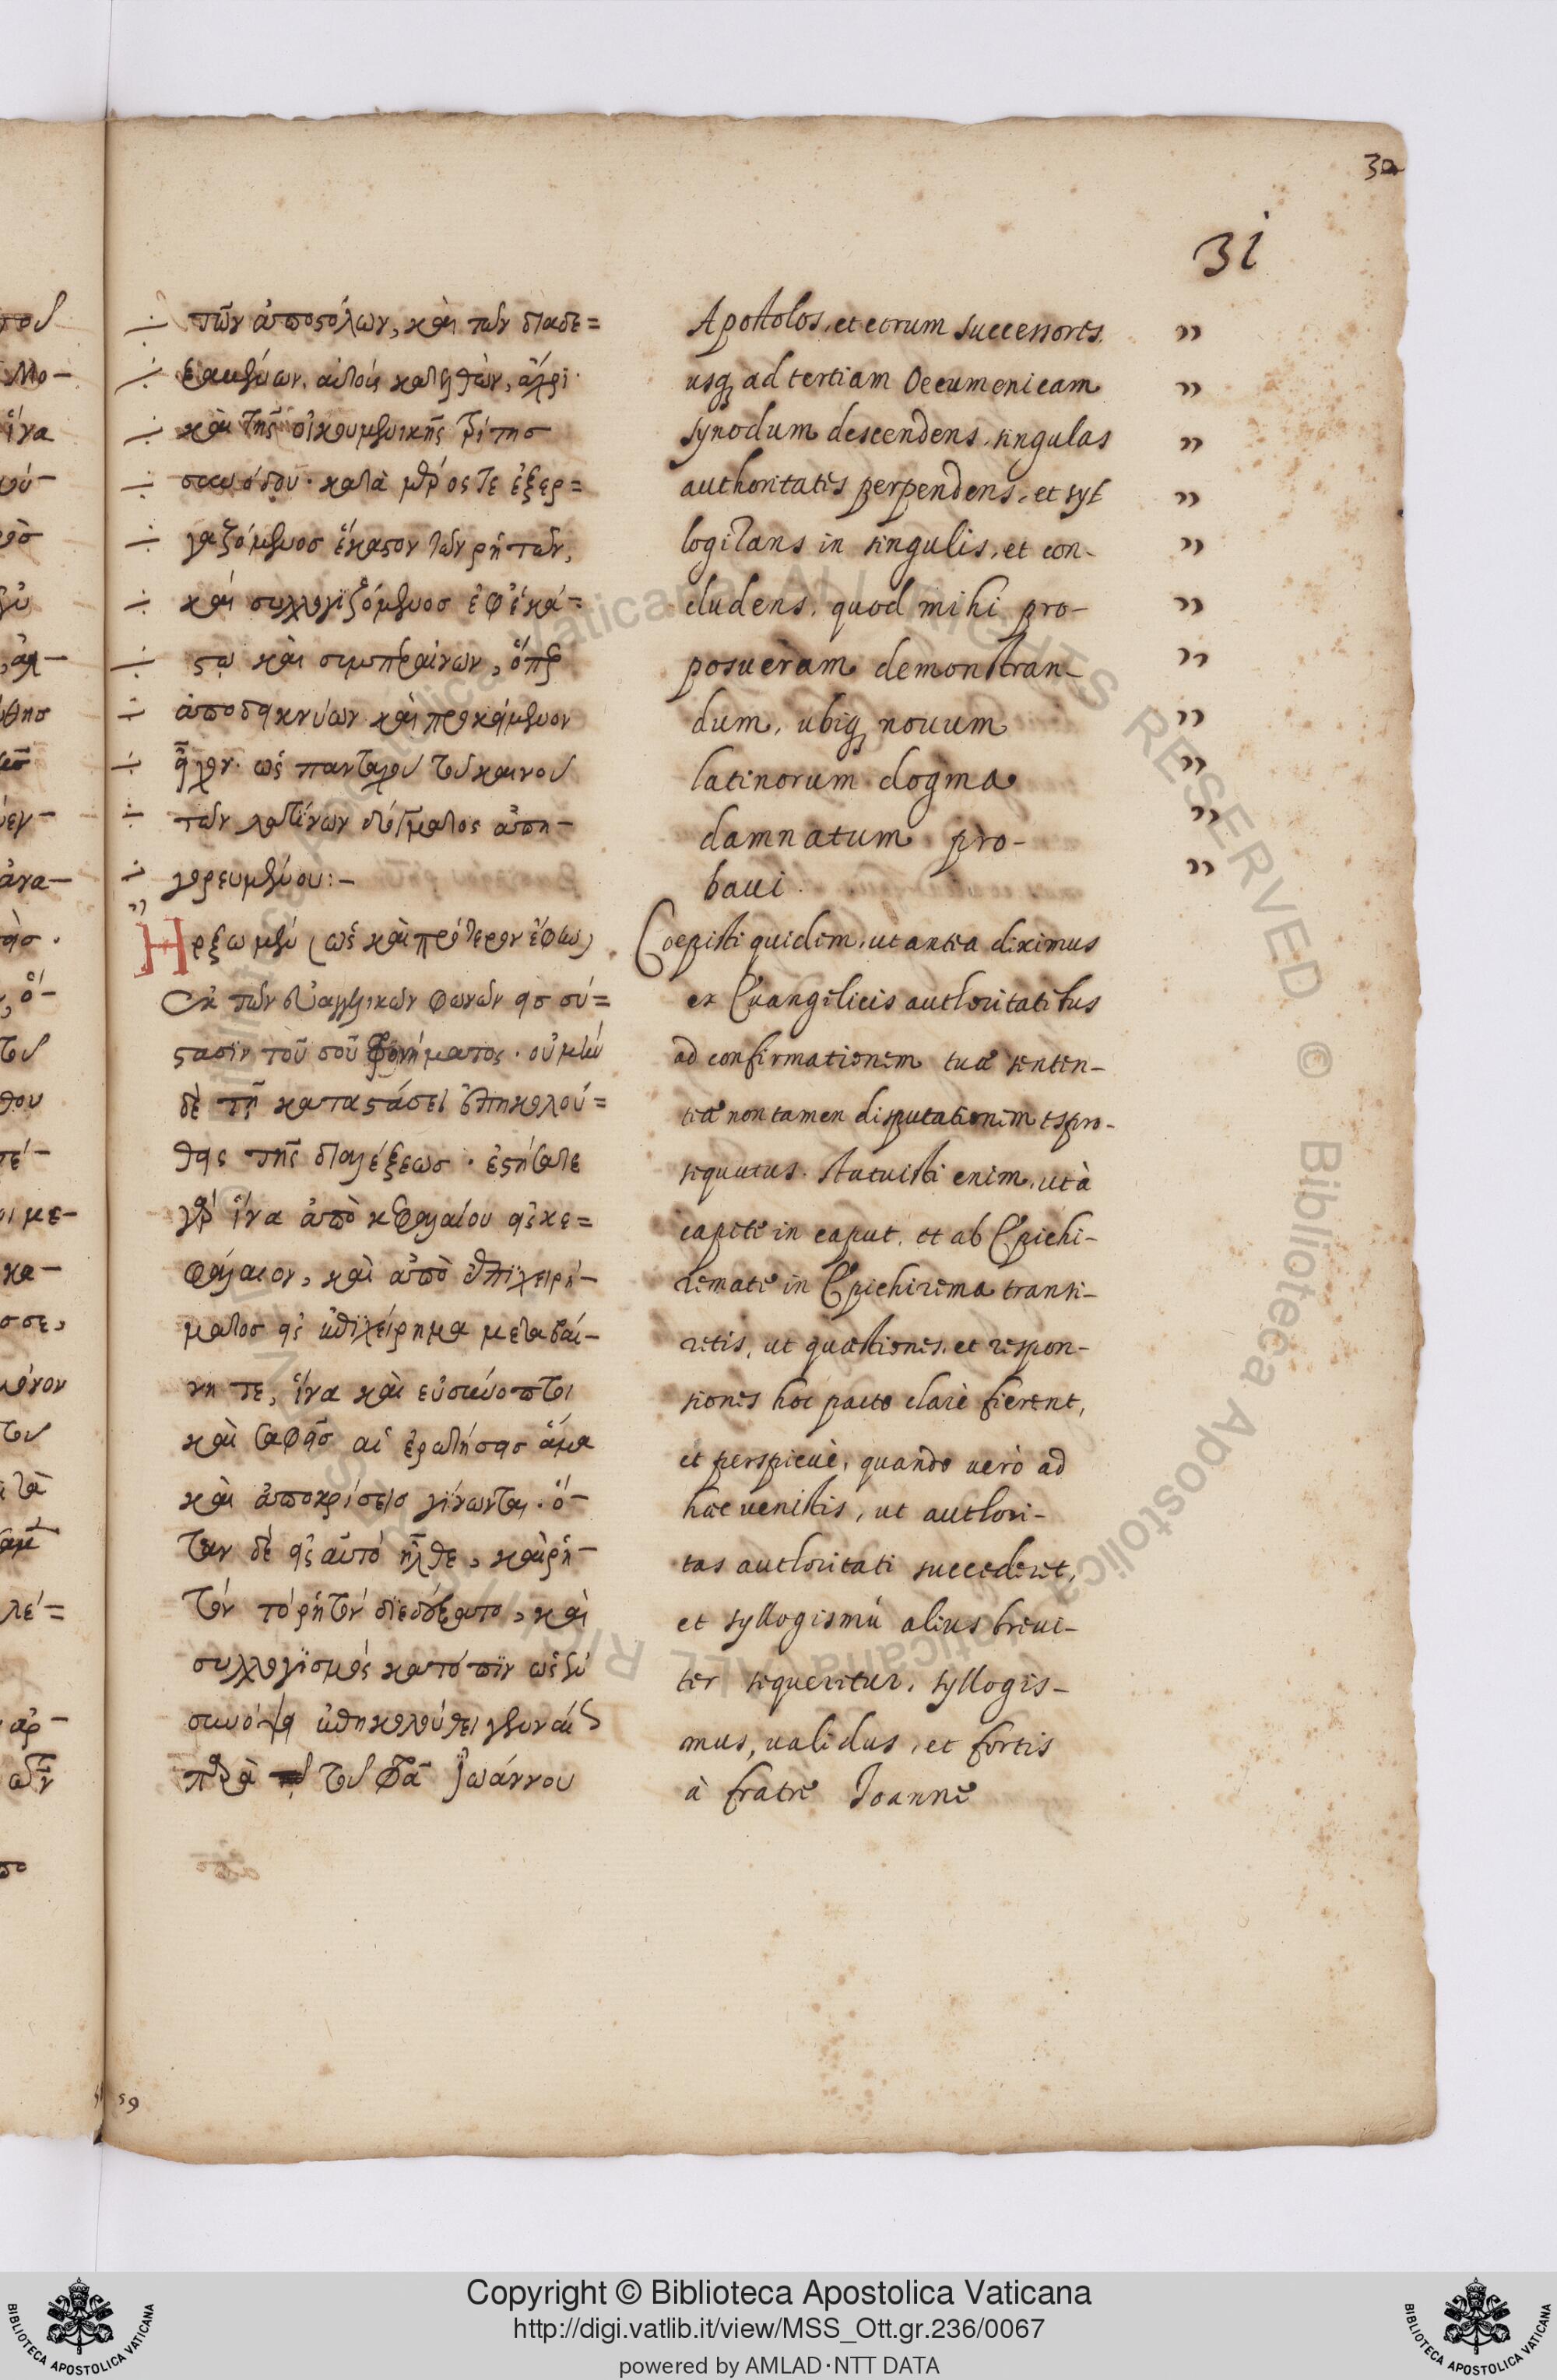 30
31
τῶν ἀποστόλων, καὶ τῶν διαδε=
ξαμένων αὐτοὺς κατελθὼν, ἄχρι
καὶ τῆς οἰκουμενικῆς τρίτης
συνόδου· κατὰ μέρος τε ἐξερ=
γαζόμενος ἕκαστον τῶν ῥητῶν,
καὶ συλλογιζόμενος ἐφ' ἑκά=
στῳ καὶ συμπεραίνων, ὅπερ
ἀποδεικνύων καὶ προκείμενον
εἶχον· ὡς πανταχοῦ τοῦ καινοῦ
τῶν λατίνων δόγματος ἀπη-
γορευμένου:-
Ἤρξω μὲν (ὡς καὶ πρότερον ἔφην)
ἐκ τῶν εὐαγγελικῶν φωνῶν εἰς σύ=
στασιν τοῦ σοῦ φρονήματος· οὐ μὴν
δὲ τῇ καταστάσει ἐπηκολού=
θεις τῆς διαλέξεως· ἐστήσατε
γὰρ ἵνα ἀπὸ κεφαλαίου εἰς κε=
φάλαιον, καὶ ἀπὸ ἐπιχειρή-
ματος εἰς ἐπιχείρημα μεταβαί-
νητε, ἵνα καὶ εὐσύνοπτοι
καὶ σαφεῖς αἱ ἐρωτήσεις ἅμα
καὶ ἀποκρίσεις γίνωνται· ὅ-
ταν δὲ εἰς αὐτὸ ἦλθε, καὶ ῥη-
τὸν τὸ ῥητὸν διεδέξατο, καὶ
συλλογισμὸς κατόπιν ὡς ἐν
συνόψει ἐπηκολούθει γενναῖος
παρὰ τοῦ φρᾶ Ἰωάννου
Apostolos, et eorum successores
usq ad tertiam Oecumenicam
synodum descendens, singulas
authoritates perpendens, et syl
logizans in singulis, et con-
cludens, quod mihi pro-
posueram demonstran-
dum, ubiq novum
latinorum dogma
damnatum pro-
baui.
Coepisti quidem, ut antea diximus
ex Euangelicis authoritatibus
ad confirmationem tuae senten-
tiae non tamen disputationem es pro-
sequutus. Statuisti enim, ut à
capite in caput, et ab Epichi-
remate in Epichirema transi-
retis, ut quaestiones, et respon-
siones hoc pacto clarè fierent,
et perspicuè, quando uerò ad
hoc uenistis, ut authori-
tas authoritati succederet,
et syllogismú alius breui-
ter sequeretur, syllogis-
mus, ualidus, et fortis
à fratre Joanne
59
Copyright © Biblioteca Apostolica Vaticana
http://digi.vatlib.it/view/MSS_Ott.gr.236/0067
powered by AMLAD·NTT DATA